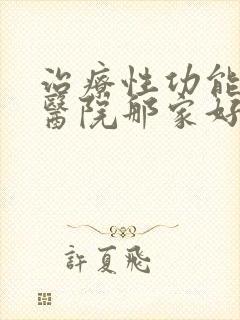 治療性功能
醫院那家好
許夏飛